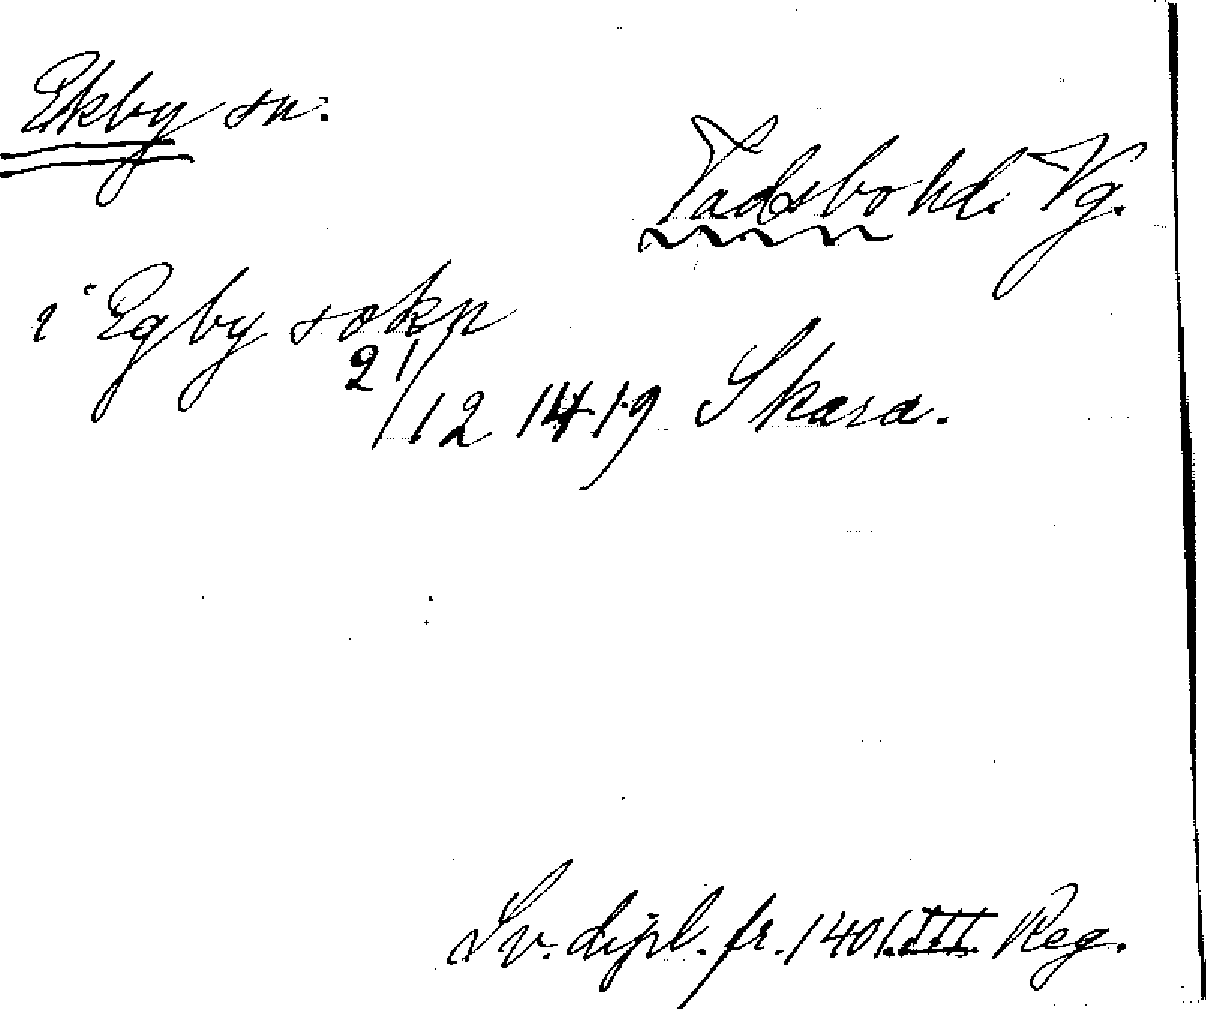 Ekby sn.
Vadsbo hd. Vg.
i Egby sokn
21/12 1419 Skara.
Sv. dipl. fr. 1401. III. Reg.